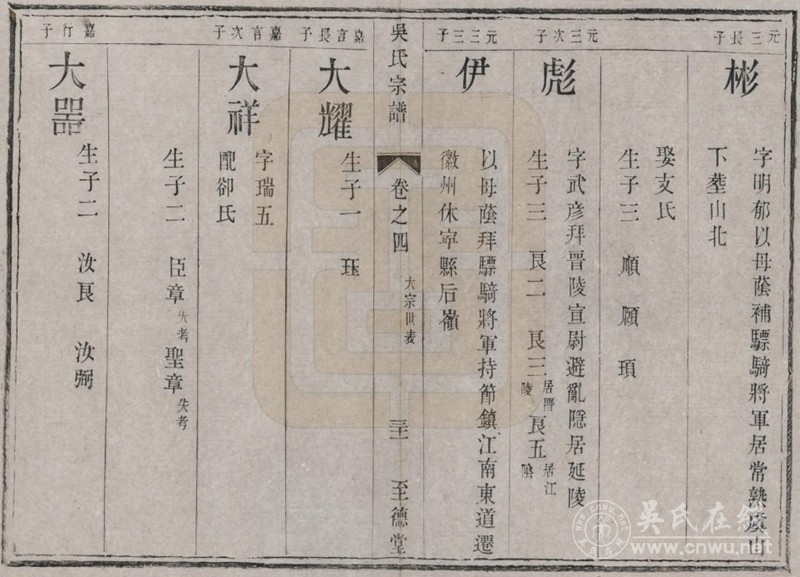 元三長子
彬
字明郁以母蔭補驃騎將軍居常熟虞山
下塟山北
娶支氏
生子三 順 願 項
元三次子
彪
字武彥拜晋陵宣尉避亂隱居延陵
生子三 良二 良三居晋陵 良五居江隂
元三三子
伊
以母蔭拜驃騎將軍持節鎮江南東道遷
徽州休寧縣后嶺
吳氏宗譜
卷之四
大宗世表
至德堂
嘉言長子
大耀
生子一 珏
嘉言次子
大祥
字瑞五
配郤氏
生子二 臣章失考 聖章失考
嘉行子
大器
生子二 汝良 汝弼
吳氏在線
www.cnwu.net